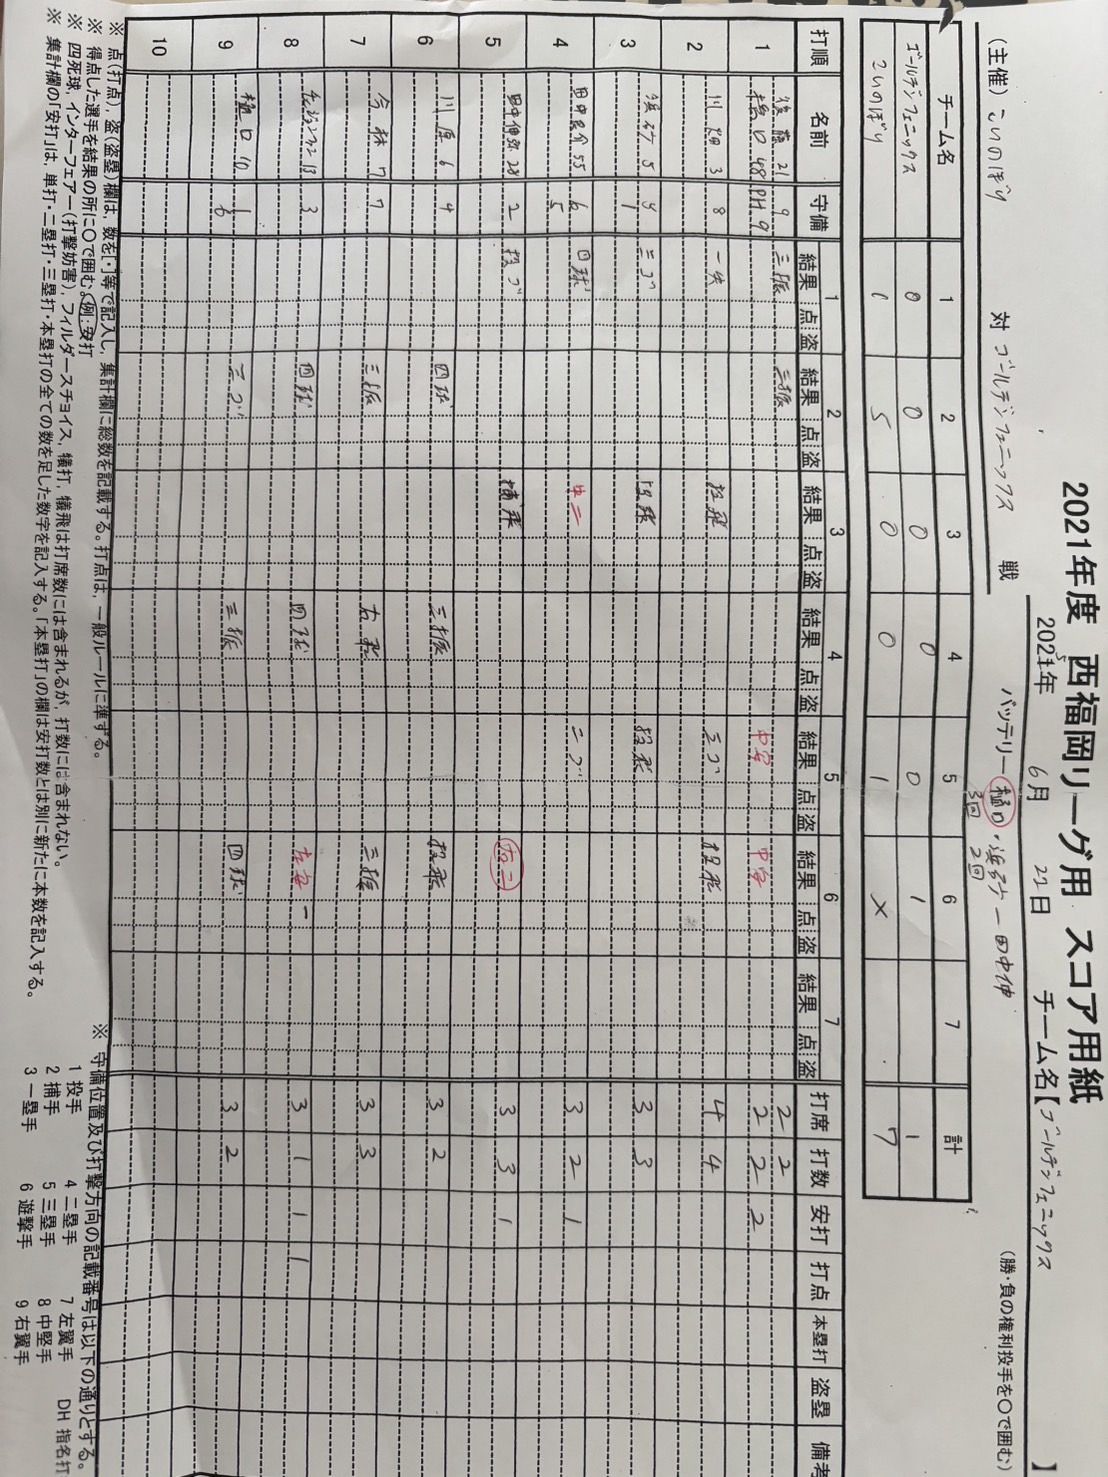 2021年度 西福岡リーグ用 スコア用紙
2025年 6月 22日 チーム名【ゴールデンフェニックス 】
(主催) こいのぼり 対 ゴールデンフェニックス 戦 バッテリー 樋口・浜砂 ー 田中伸
3回 2回
(勝・負の権利投手を○で囲む)
チーム名 1 2 3 4 5 6 7 計
ゴールデンフェニックス 0 0 0 0 0 1 1
こいのぼり 1 5 0 0 1 X 7
打順 名前 守備 1 2 3 4 5 6 7 打席 打数 安打 打点 本塁打 盗塁 備考
結果 点 盗 結果 点 盗 結果 点 盗 結果 点 盗 結果 点 盗 結果 点 盗 結果 点 盗
1 後藤 21 9 三振 三振 2 2
48 PH.9 中安 中安 2 2 2
2 川畑 3 8 一失 投飛 三ゴ 投飛 4 4
3 浜砂 5 4 三ゴ 投飛 投飛 3 3
1
4 田中良介 55 6 四球 中二 二ゴ 3 2 1
5
5 田中伸弥 28 2 投ゴ 捕飛 右二 3 3 1
6 川原 6 4 四球 三振 投飛 3 2
7 今林 7 7 三振 右飛 三振 3 3
8 13 3 四球 四球 左安 一 3 1 1 1
9 樋口 10 1 三ゴ 三振 四球 3 2
6
10
※ 点(打点)、盗(盗塁)欄は、数を[・]等で記入し、集計欄に総数を記載する。打点は、一般ルールに準ずる。
※ 得点した選手を結果の所に○で囲む。例:安打
※ 四死球、インターフェアー(打撃妨害)、フィルダースチョイス、犠打、犠飛は打席数には含まれるが、打数には含まれない。
※ 集計欄の「安打」は、単打・二塁打・三塁打・本塁打の全ての数を足した数字を記入する。「本塁打」の欄は安打数とは別に新たに本数を記入する。
※ 守備位置及び打撃方向の記載番号は以下の通りとする。
1 投手 4 二塁手 7 左翼手 DH 指名打
2 捕手 5 三塁手 8 中堅手
3 一塁手 6 遊撃手 9 右翼手